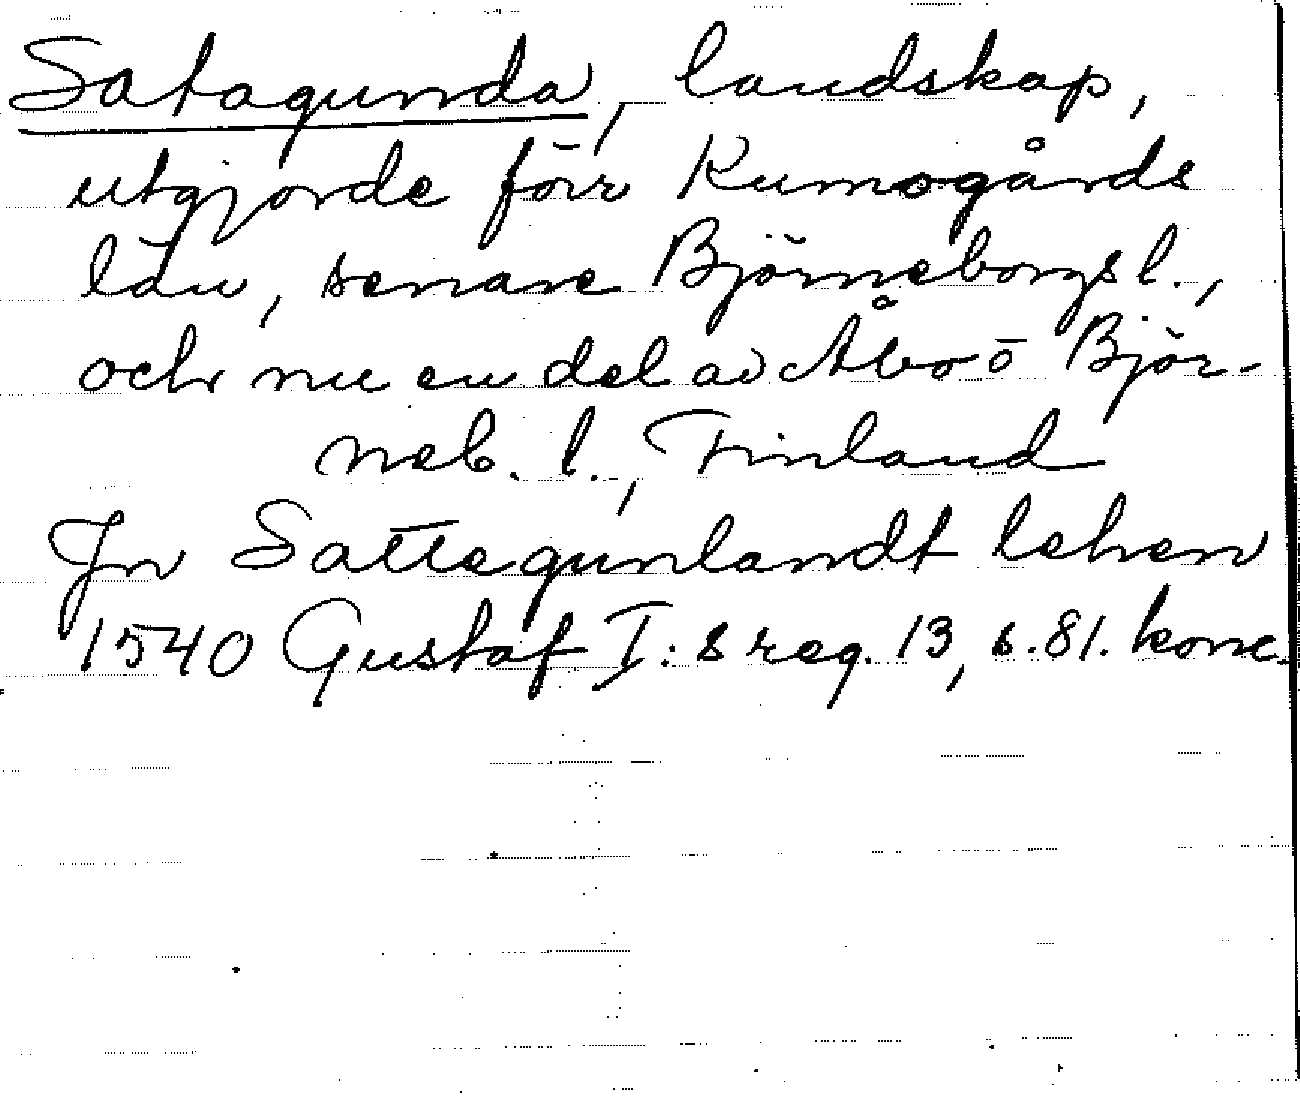 Satagunda, landskap,
utgjorde förr Kumogårds
län, senare Björneborgs l.,
och nu en del av Åbo o Björ-
neb. l., Finland
Jn Sattegunlandt lehen
1540 Gustaf I:s reg. 13, s. 81. konc.